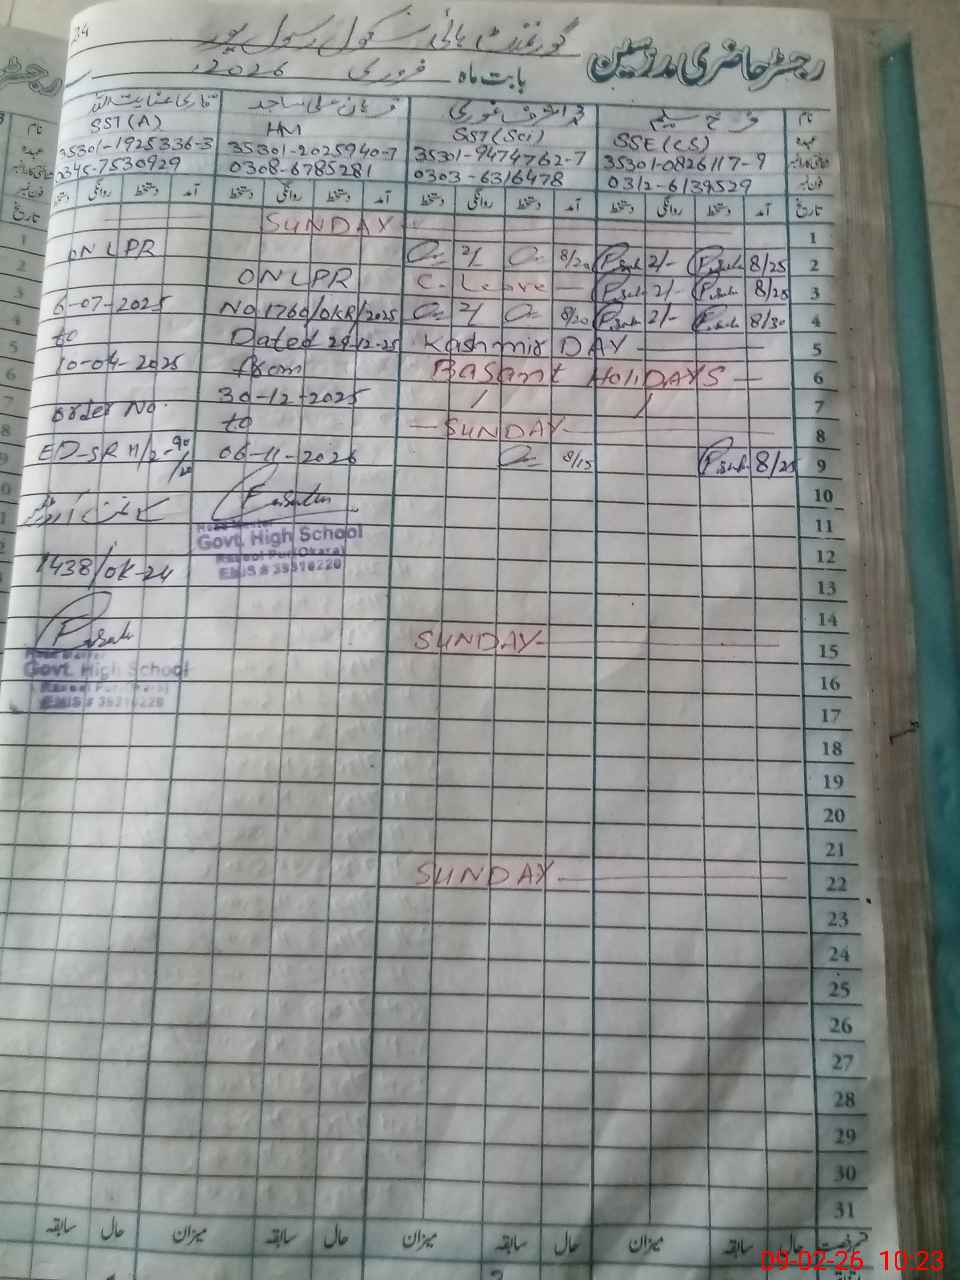 34
گورنمنٹ ہائی سکول رسول پور
رجسٹر حاضری مدرسین
بابت ماہ فروری 2026ء
نام
فرخ سلیم
قربان علی ساجد
قاری عنایت اللہ
عہدہ
SSE (CS)
SST (Sci)
HM
SST (A)
35301-0826117-9
35301-9474762-7
35301-2025940-7
35301-1925336-3
0312-6139529
0303-6316478
0308-6785281
0345-7530929
تاریخ آمد دستخط روانگی دستخط آمد دستخط روانگی دستخط آمد دستخط روانگی دستخط آمد دستخط روانگی دستخط
1 SUNDAY
2 8/25 2/- 8/20 2/ ON LPR
3 8/25 2/- C. Leave ON LPR
4 8/30 2/- 8/20 2/ No 1760/OKR/2025 6-07-2025
5 Kashmir DAY Dated 29-12-25 to
6 Basant HoliDAYS from 10-04-2025
7 / / 30-12-2025 order No.
8 SUNDAY to
9 8/25 8/15 06-11-2026 ED-SR H/2-90/20
10
11
Head Master
Govt. High School
Rasool Pur (Okara)
EMIS # 35310220
12
1438/OK-24
13
14
15 SUNDAY
Head Master
Govt. High School
Rasool Pur (Okara)
EMIS # 35310220
16
17
18
19
20
21
22 SUNDAY
23
24
25
26
27
28
29
30
31
حال سابقہ میزان حال سابقہ میزان حال سابقہ میزان حال سابقہ
09-02-26 10:23